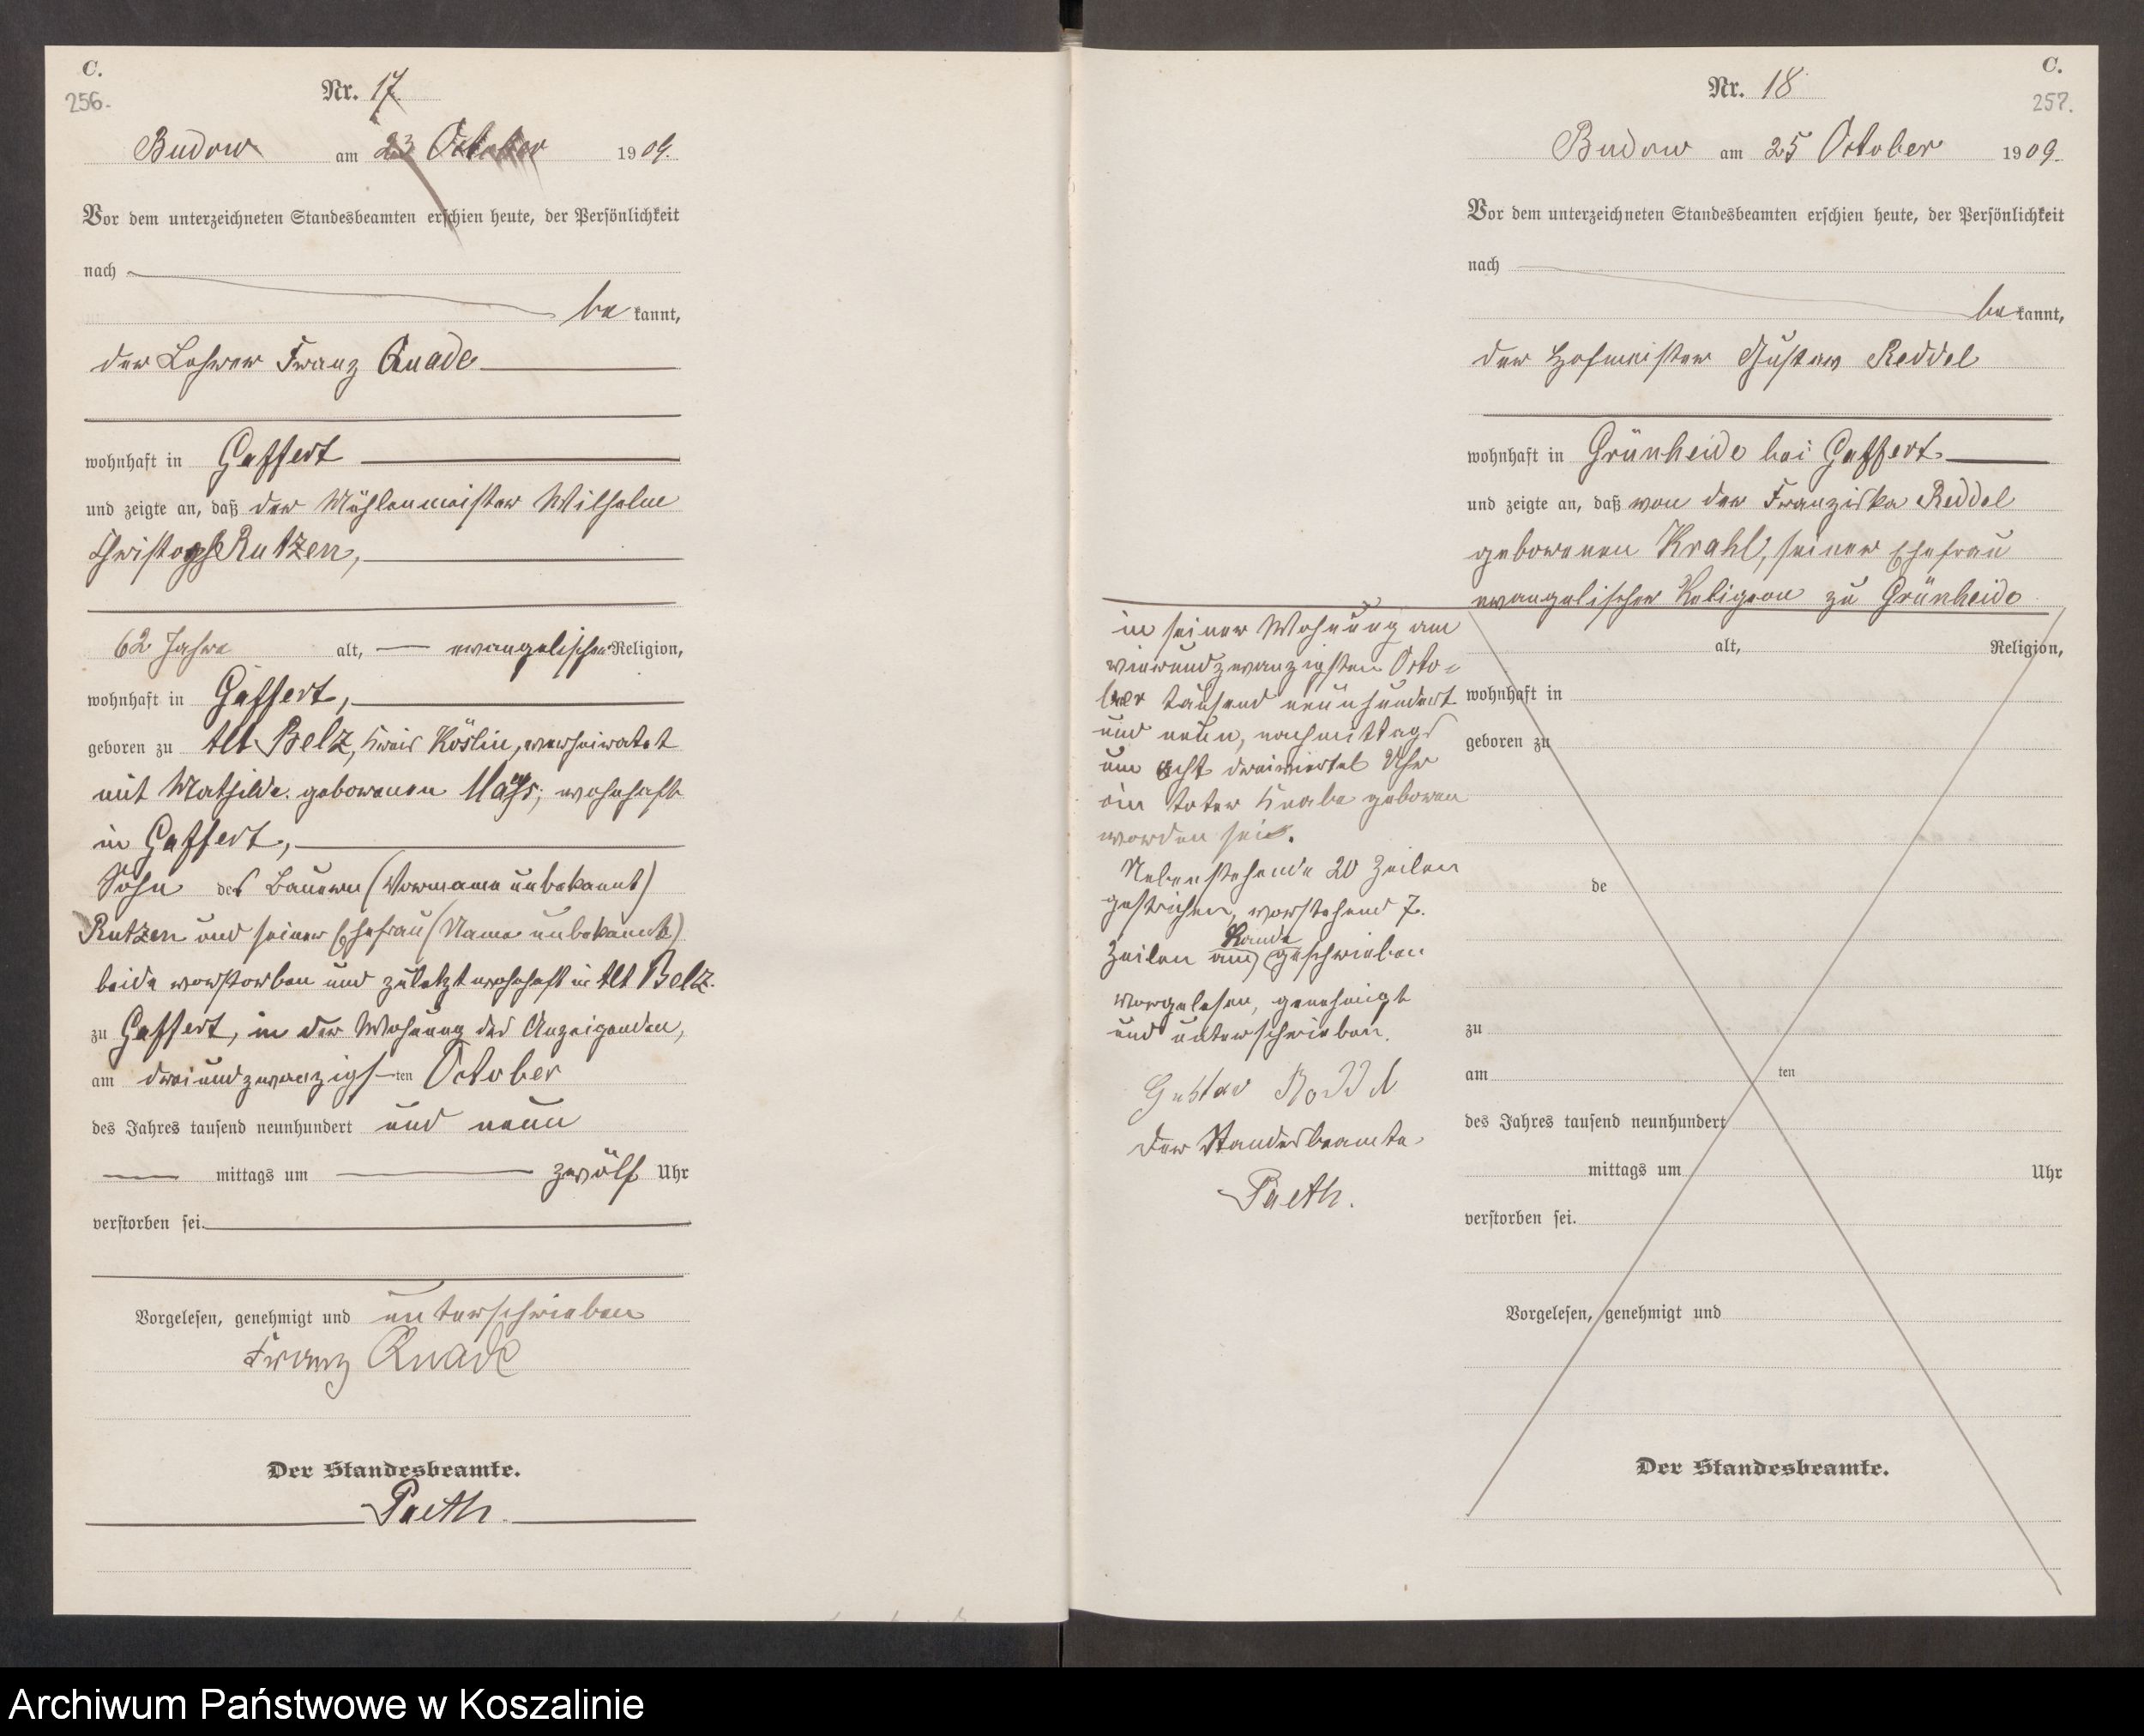 C.
256.
Nr. 17.
Budow am 23 October 1909.
Vor dem unterzeichneten Standesbeamten erschien heute, der Persönlichkeit
nach
be kannt,
der Lehrer Franz Quade
wohnhaft in Gaffert
und zeigte an, daß der Mühlenmeister Wilhelm
Christoph Rutzen,
62 Jahre alt, evangelischer Religion,
wohnhaft in Gaffert,
geboren zu Alt Belz, Kreis Köslin, verheiratet
mit Mathilde geborenen wohnhaft
in Gaffert,
Sohn des Bauern (Vorname unbekannt)
Rutzen und seiner Ehefrau (Name unbekannt)
beide verstorben und zuletzt wohnhaft in Alt Belz.
zu Gaffert, in der Wohnung des Anzeigenden,
am dreiundzwanzigsten October
des Jahres tausend neunhundert und neun
mittags um zwölf Uhr
verstorben sei.
Vorgelesen, genehmigt und unterschrieben
Franz Quade
Der Standesbeamte.
Paeth.
C.
257.
Nr. 18
Budow am 25 October 1909.
Vor dem unterzeichneten Standesbeamten erschien heute, der Persönlichkeit
nach
be kannt,
der Hofmeister Gustav Reddel
wohnhaft in Grünheide bei Gaffert
und zeigte an, daß von der Franziska Reddel
geborenen Krahl, seiner Ehefrau
evangelischer Religion zu Grünheide
in seiner Wohnung am
vierundzwanzigsten Octo-
ber tausend neunhundert
und neun, nachmittags
um acht dreiviertel Uhr
ein toter Knabe geboren
worden sei.
Nebenstehende 20 Zeilen
gestrichen, vorstehend 7.
Zeilen am Rande geschrieben
Vorgelesen, genehmigt
und unterschrieben.
Gustav Reddel
Der Standesbeamte
Paeth.
alt, Religion,
wohnhaft in
geboren zu
de
zu
am ten
des Jahres tausend neunhundert
mittags um Uhr
verstorben sei.
Vorgelesen, genehmigt und
Der Standesbeamte.
Archiwum Państwowe w Koszalinie